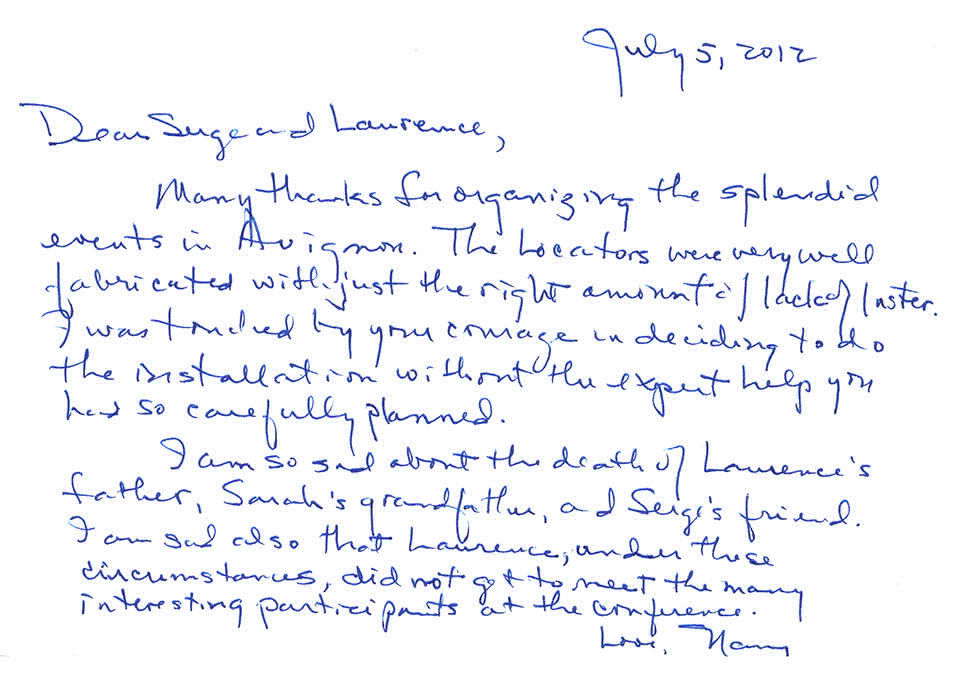 July 5, 2012
Dear Serge and Laurence,
Many thanks for organizing the splendid
events in Avignon. The Locators were very well
fabricated with just the right amount of lack of luster.
I was touched by your courage in deciding to do
the installation without the expert help you
had so carefully planned.
I am so sad about the death of Laurence's
father, Sarah's grandfather, and Serge's friend.
I am sad also that Laurence, under these
circumstances, did not get to meet the many
interesting participants at the conference.
Love, Nancy